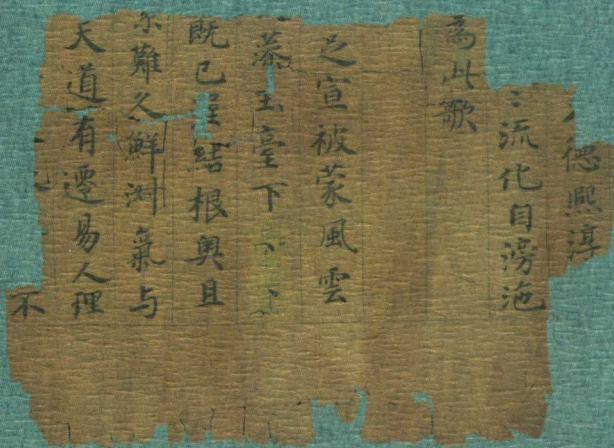 德熙淳
流化自滂沲
為此歌
宣被蒙風雲
藻玉臺下
既已渥結根奥且
難久鮮淑氣与
天道有遷易人理
不